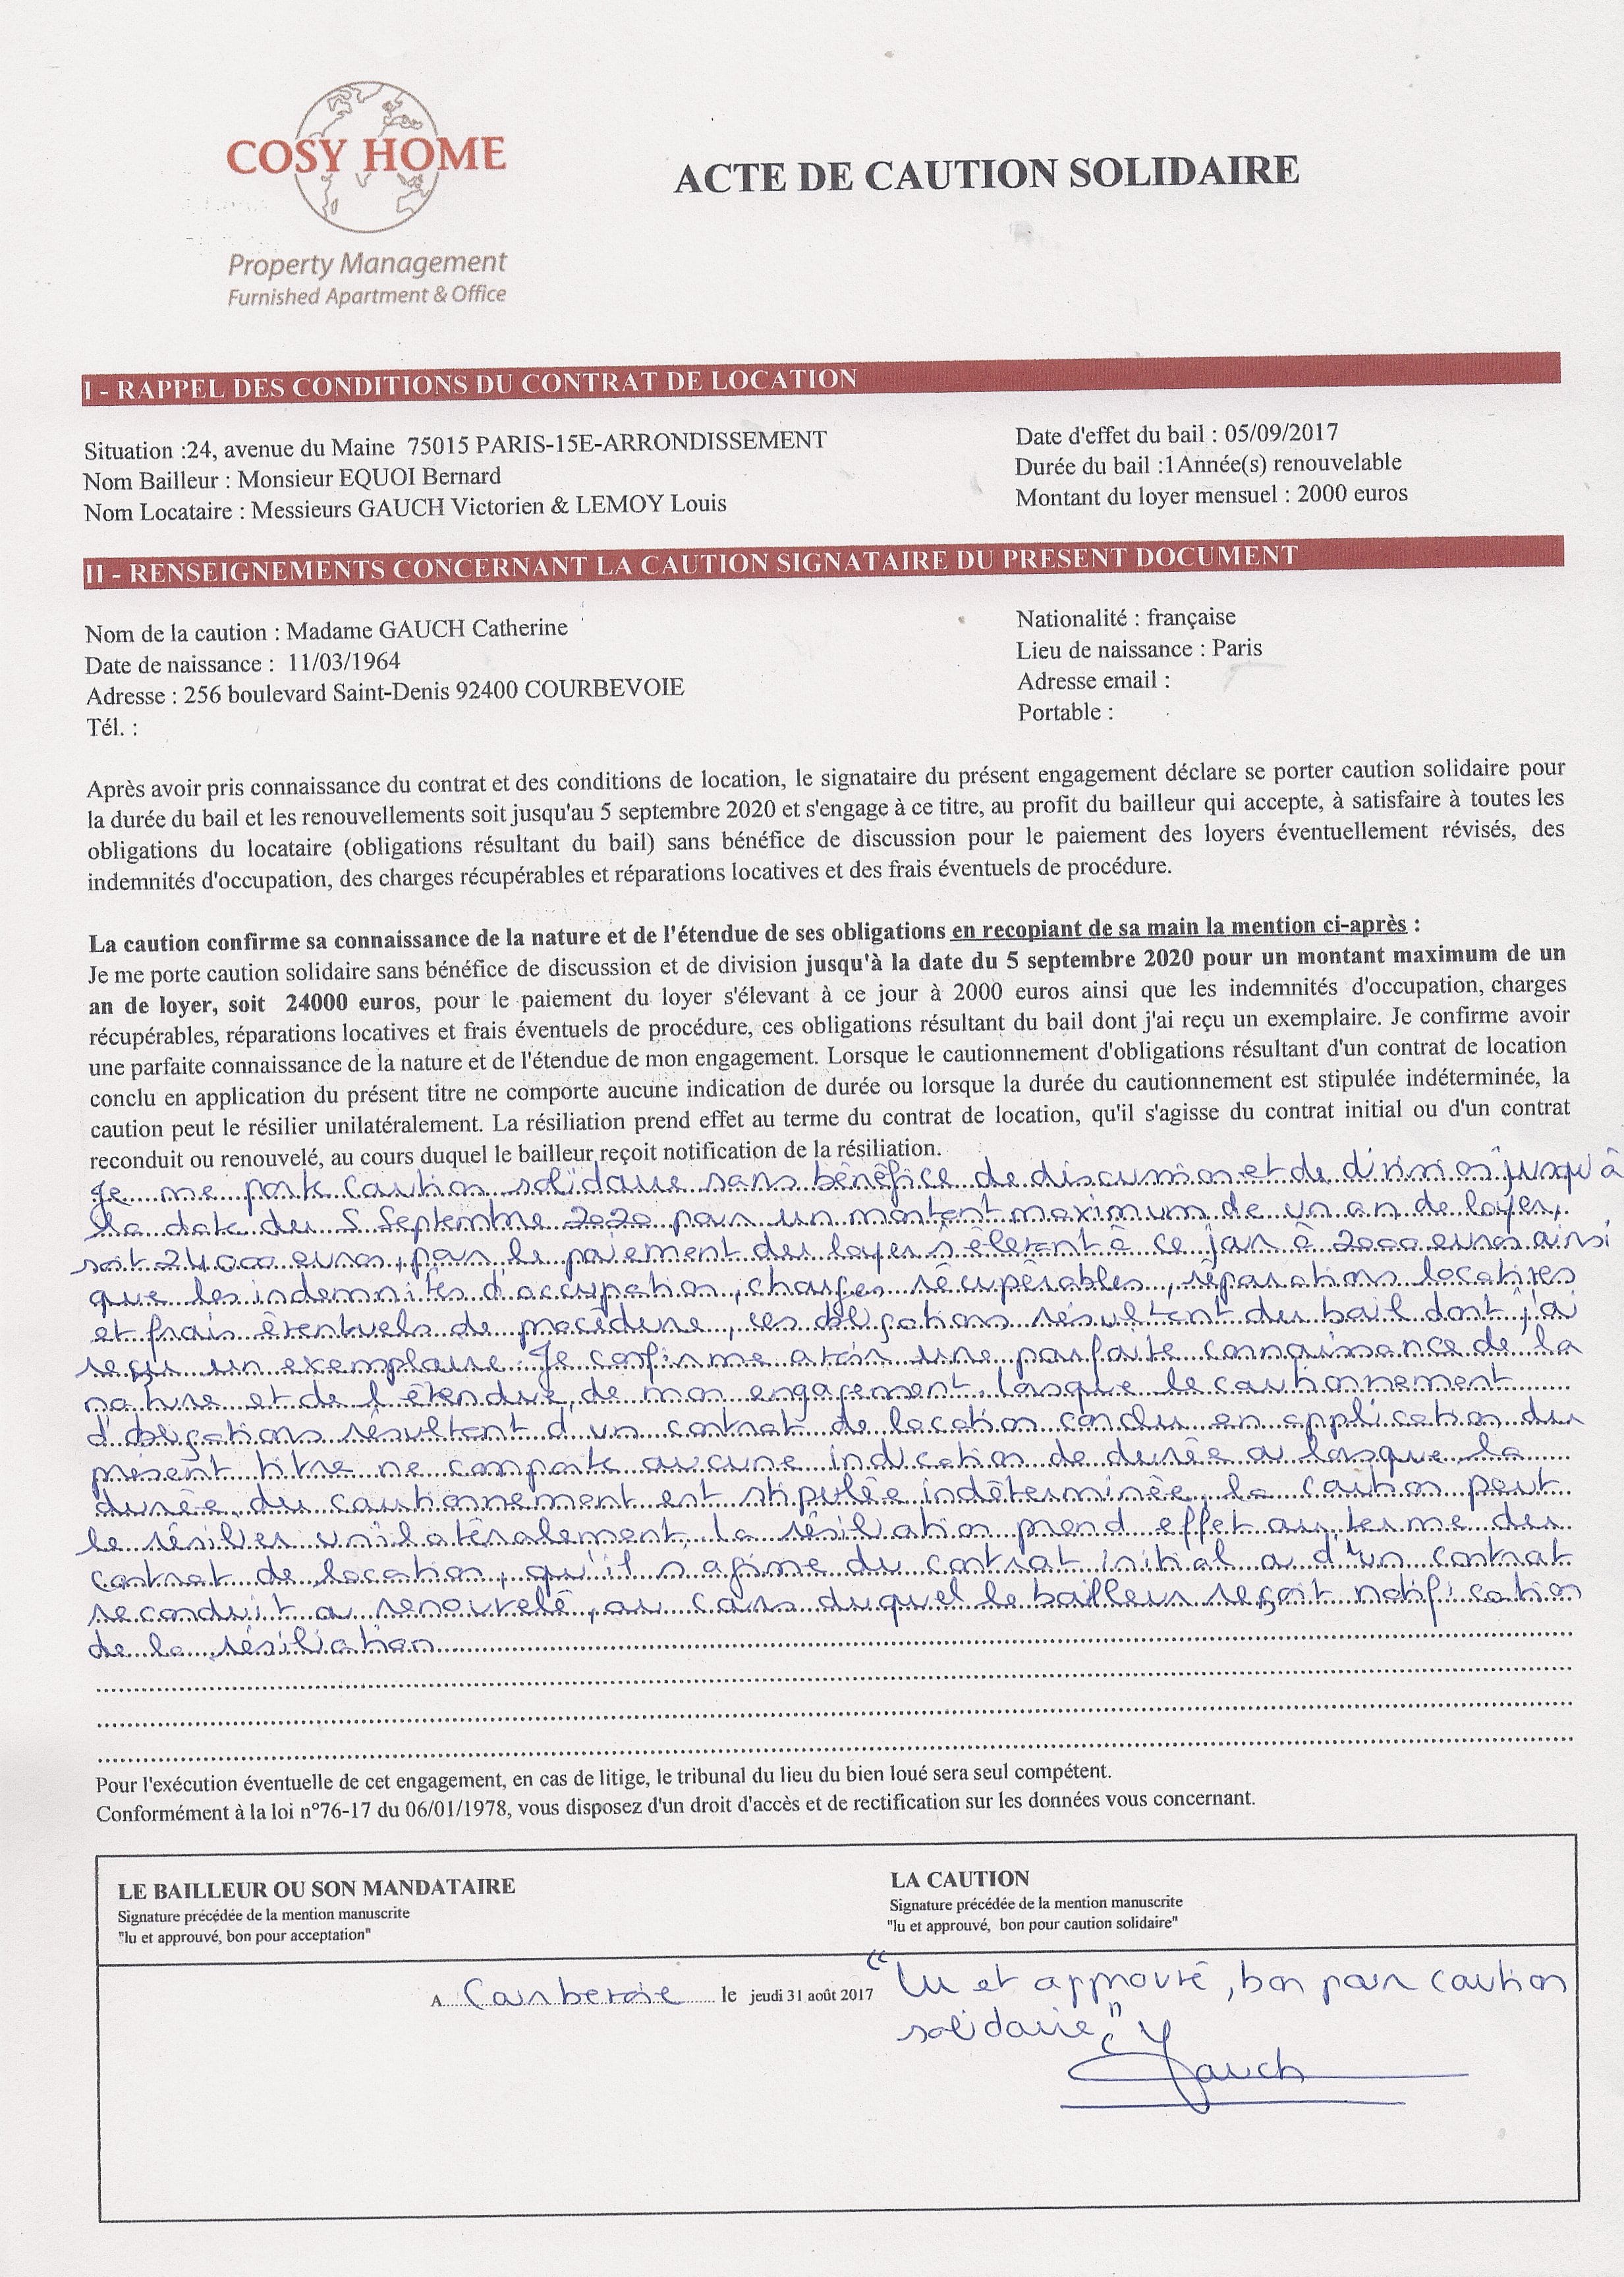 COSY HOME
Property Management
Furnished Apartment & Office
ACTE DE CAUTION SOLIDAIRE
I - RAPPEL DES CONDITIONS DU CONTRAT DE LOCATION
Situation :24, avenue du Maine 75015 PARIS-15E-ARRONDISSEMENT
Nom Bailleur : Monsieur EQUOI Bernard
Nom Locataire : Messieurs GAUCH Victorien & LEMOY Louis
Date d'effet du bail : 05/09/2017
Durée du bail :1Année(s) renouvelable
Montant du loyer mensuel : 2000 euros
II - RENSEIGNEMENTS CONCERNANT LA CAUTION SIGNATAIRE DU PRESENT DOCUMENT
Nom de la caution : Madame GAUCH Catherine
Date de naissance : 11/03/1964
Adresse : 256 boulevard Saint-Denis 92400 COURBEVOIE
Tél. :
Nationalité : française
Lieu de naissance : Paris
Adresse email :
Portable :
Après avoir pris connaissance du contrat et des conditions de location, le signataire du présent engagement déclare se porter caution solidaire pour
la durée du bail et les renouvellements soit jusqu'au 5 septembre 2020 et s'engage à ce titre, au profit du bailleur qui accepte, à satisfaire à toutes les
obligations du locataire (obligations résultant du bail) sans bénéfice de discussion pour le paiement des loyers éventuellement révisés, des
indemnités d'occupation, des charges récupérables et réparations locatives et des frais éventuels de procédure.
La caution confirme sa connaissance de la nature et de l'étendue de ses obligations en recopiant de sa main la mention ci-après :
Je me porte caution solidaire sans bénéfice de discussion et de division jusqu'à la date du 5 septembre 2020 pour un montant maximum de un
an de loyer, soit 24000 euros, pour le paiement du loyer s'élevant à ce jour à 2000 euros ainsi que les indemnités d'occupation, charges
récupérables, réparations locatives et frais éventuels de procédure, ces obligations résultant du bail dont j'ai reçu un exemplaire. Je confirme avoir
une parfaite connaissance de la nature et de l'étendue de mon engagement. Lorsque le cautionnement d'obligations résultant d'un contrat de location
conclu en application du présent titre ne comporte aucune indication de durée ou lorsque la durée du cautionnement est stipulée indéterminée, la
caution peut le résilier unilatéralement. La résiliation prend effet au terme du contrat de location, qu'il s'agisse du contrat initial ou d'un contrat
reconduit ou renouvelé, au cours duquel le bailleur reçoit notification de la résiliation.
Je me porte caution solidaire sans bénéfice de discussion et de division jusqu'à
la date du 5 Septembre 2020 pour un montant maximum de un an de loyer,
soit 24000 euros, pour le paiement du loyer s'élevant à ce jour à 2000 euros ainsi
que les indemnités d'occupation, charges récupérables, réparations locatives
et frais éventuels de procédure, ces obligations résultant du bail dont j'ai
reçu un exemplaire. Je confirme avoir une parfaite connaissance de la
nature et de l'étendue de mon engagement. Lorsque le cautionnement
d'obligations résultant d'un contrat de location conclu en application du
présent titre ne comporte aucune indication de durée ou lorsque la
durée du cautionnement est stipulée indéterminée, la caution peut
le résilier unilatéralement. la résiliation prend effet au terme du
contrat de location, qu'il s'agisse du contrat initial ou d'un contrat
reconduit ou renouvelé, au cours duquel le bailleur reçoit notification
de la résiliation
Pour l'exécution éventuelle de cet engagement, en cas de litige, le tribunal du lieu du bien loué sera seul compétent.
Conformément à la loi n°76-17 du 06/01/1978, vous disposez d'un droit d'accès et de rectification sur les données vous concernant.
LE BAILLEUR OU SON MANDATAIRE
Signature précédée de la mention manuscrite
"lu et approuvé, bon pour acceptation"
LA CAUTION
Signature précédée de la mention manuscrite
"lu et approuvé, bon pour caution solidaire"
A Courbevoie le jeudi 31 août 2017
"lu et approuvé, bon pour caution
solidaire"
Gauch